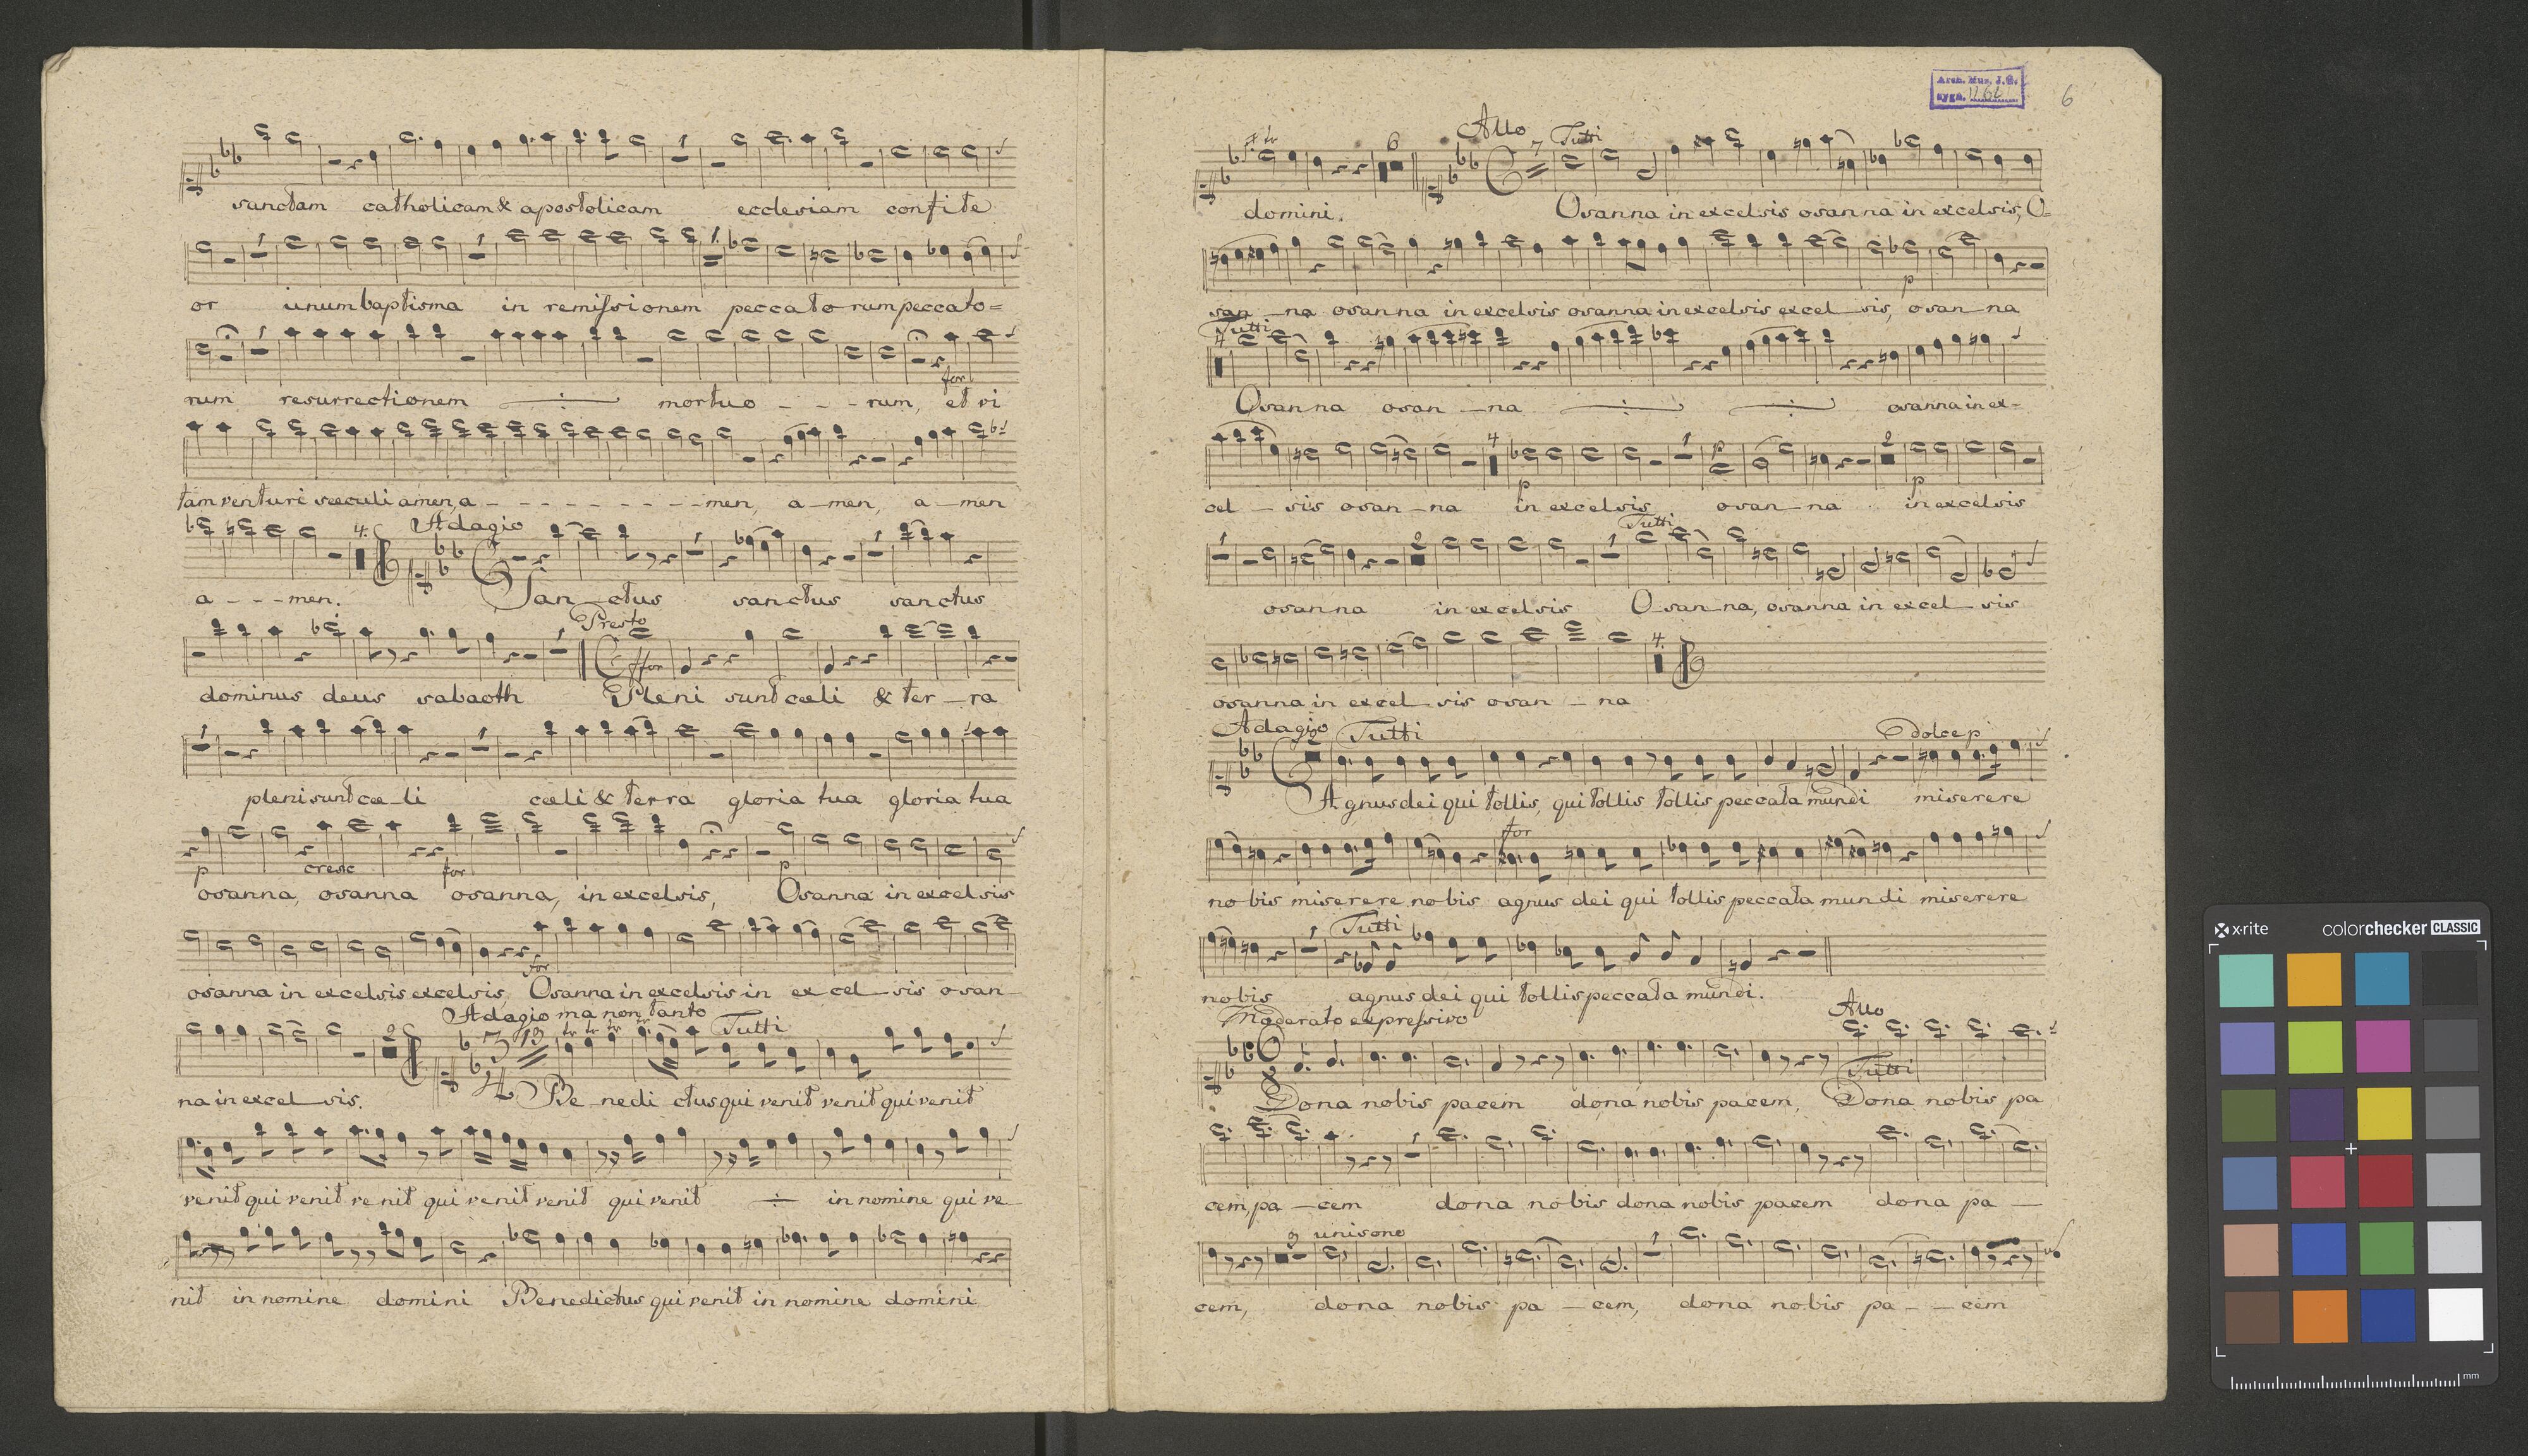 sanctam catholicam & apostolicam ecclesiam confite
or unum baptisma in remissionem peccato rum peccato=
rum resurrectionem ÷ mortuo - - - rum, et vi
for
tam venturi sæculi amen, a - - - - - - - - men, a - men, a - men
4. Adagio
a - - - men. San - ctus sanctus sanctus
Presto
ffor
dominus deus sabaoth Pleni sunt cæli & ter - ra
pleni sunt cæ - li cæli & terra gloria tua gloria tua
p cresc for p
osanna, osanna osanna, in excelsis, Osanna in excelsis
for
osanna in excelsis excelsis, Osanna in excelsis in ex cel - sis osan -
2 Adagio ma non tanto
3 4 13 tr tr tr Tutti
na in excel - sis. Be - nedi ctus qui venit venit qui venit
venit qui venit ve nit qui venit venit qui venit ÷ in nomine qui ve -
nit in nomine domini Benedictus qui venit in nomine domini
Arch. Mus. J. G.
sygn.
6
tr 6 Allo 7 Tutti
domini. Osanna in excelsis osanna in excelsis, O=
p
san - na osanna in excelsis osanna in excelsis excel - sis, osan - na
4 Tutti
Osanna osan - na ÷ ÷ osanna in ex -
4 1 p 2
p p
cel - sis osan - na in excelsis osan - na in excelsis
1 2 1 Tutti
osanna in excelsis Osan - na, osanna in excel - sis
4.
osanna in excel - sis osan - na
Adagio Tutti Dolce p
Agnus dei qui tollis, qui tollis tollis peccata mundi miserere
for
no bis miserere no bis agnus dei qui tollis peccata mun di miserere
1 Tutti
nobis agnus dei qui tollis peccata mundi.
Moderato expressivo Allo
6 8 Tutti
Dona nobis pacem dona nobis pacem, Dona nobis pa
1
cem, pa - cem dona nobis dona nobis pacem dona pa -
3 unisono 1
cem, dona nobis pa - cem, dona nobis pa - - cem
x·rite colorchecker CLASSIC
mm